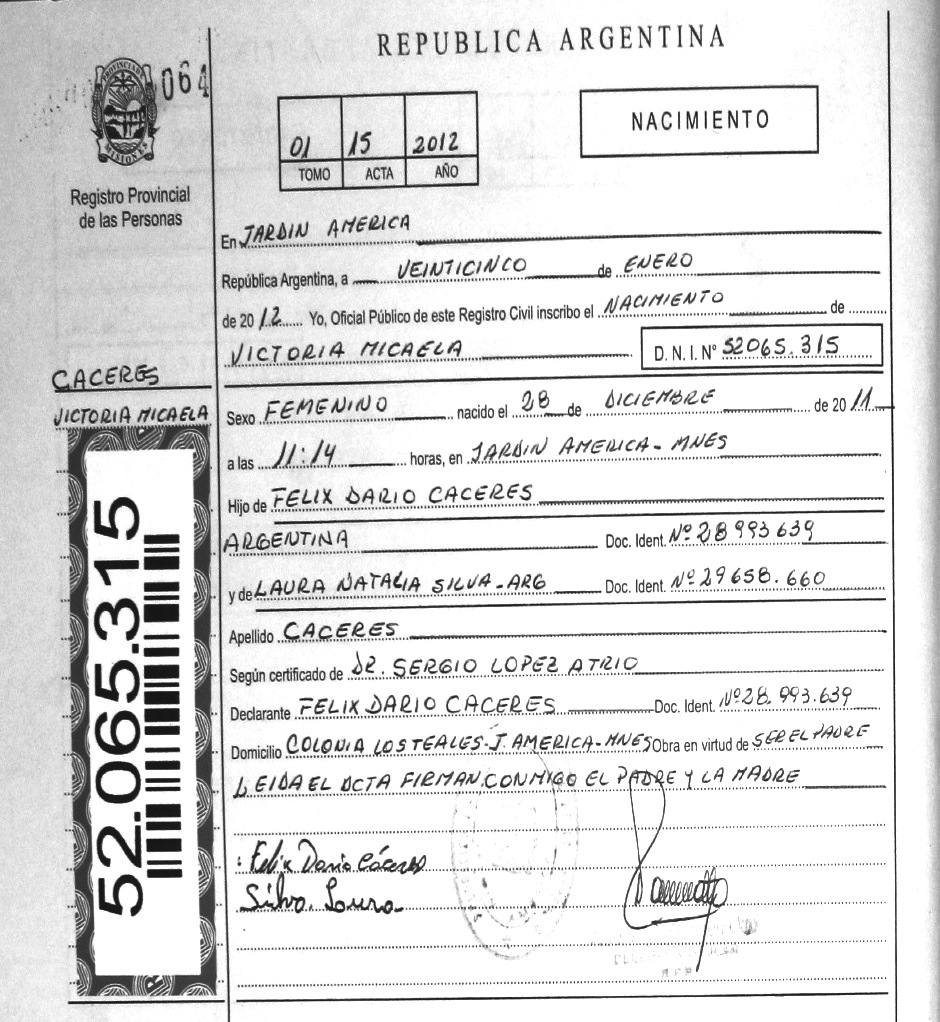 REPUBLICA ARGENTINA
PROVINCIA DE
MISIONES
064
Registro Provincial
de las Personas
01 15 2012
TOMO ACTA AÑO
NACIMIENTO
En JARDIN AMERICA
República Argentina, a VEINTICINCO de ENERO
de 2012 Yo, Oficial Público de este Registro Civil inscribo el NACIMIENTO de
VICTORIA MICAELA D. N. I. Nº 52065.315
CACERES
VICTORIA MICAELA
Sexo FEMENINO nacido el 28 de DICIEMBRE de 2011
a las 11:14 horas, en JARDIN AMERICA - MNES
Hijo de FELIX DARIO CACERES
ARGENTINA Doc. Ident. Nº 28 993 639
y de LAURA NATALIA SILVA - ARG Doc. Ident. Nº 29658.660
Apellido CACERES
Según certificado de DR. SERGIO LOPEZ ATRIO
Declarante FELIX DARIO CACERES Doc. Ident. Nº 28.993.639
Domicilio COLONIA LOS TEALES - J. AMERICA - MNES Obra en virtud de SER EL PADRE
LEIDA EL ACTA FIRMAN CONMIGO EL PADRE Y LA MADRE
Felix Dario Cáceres
Silva. Laura
52.065.315